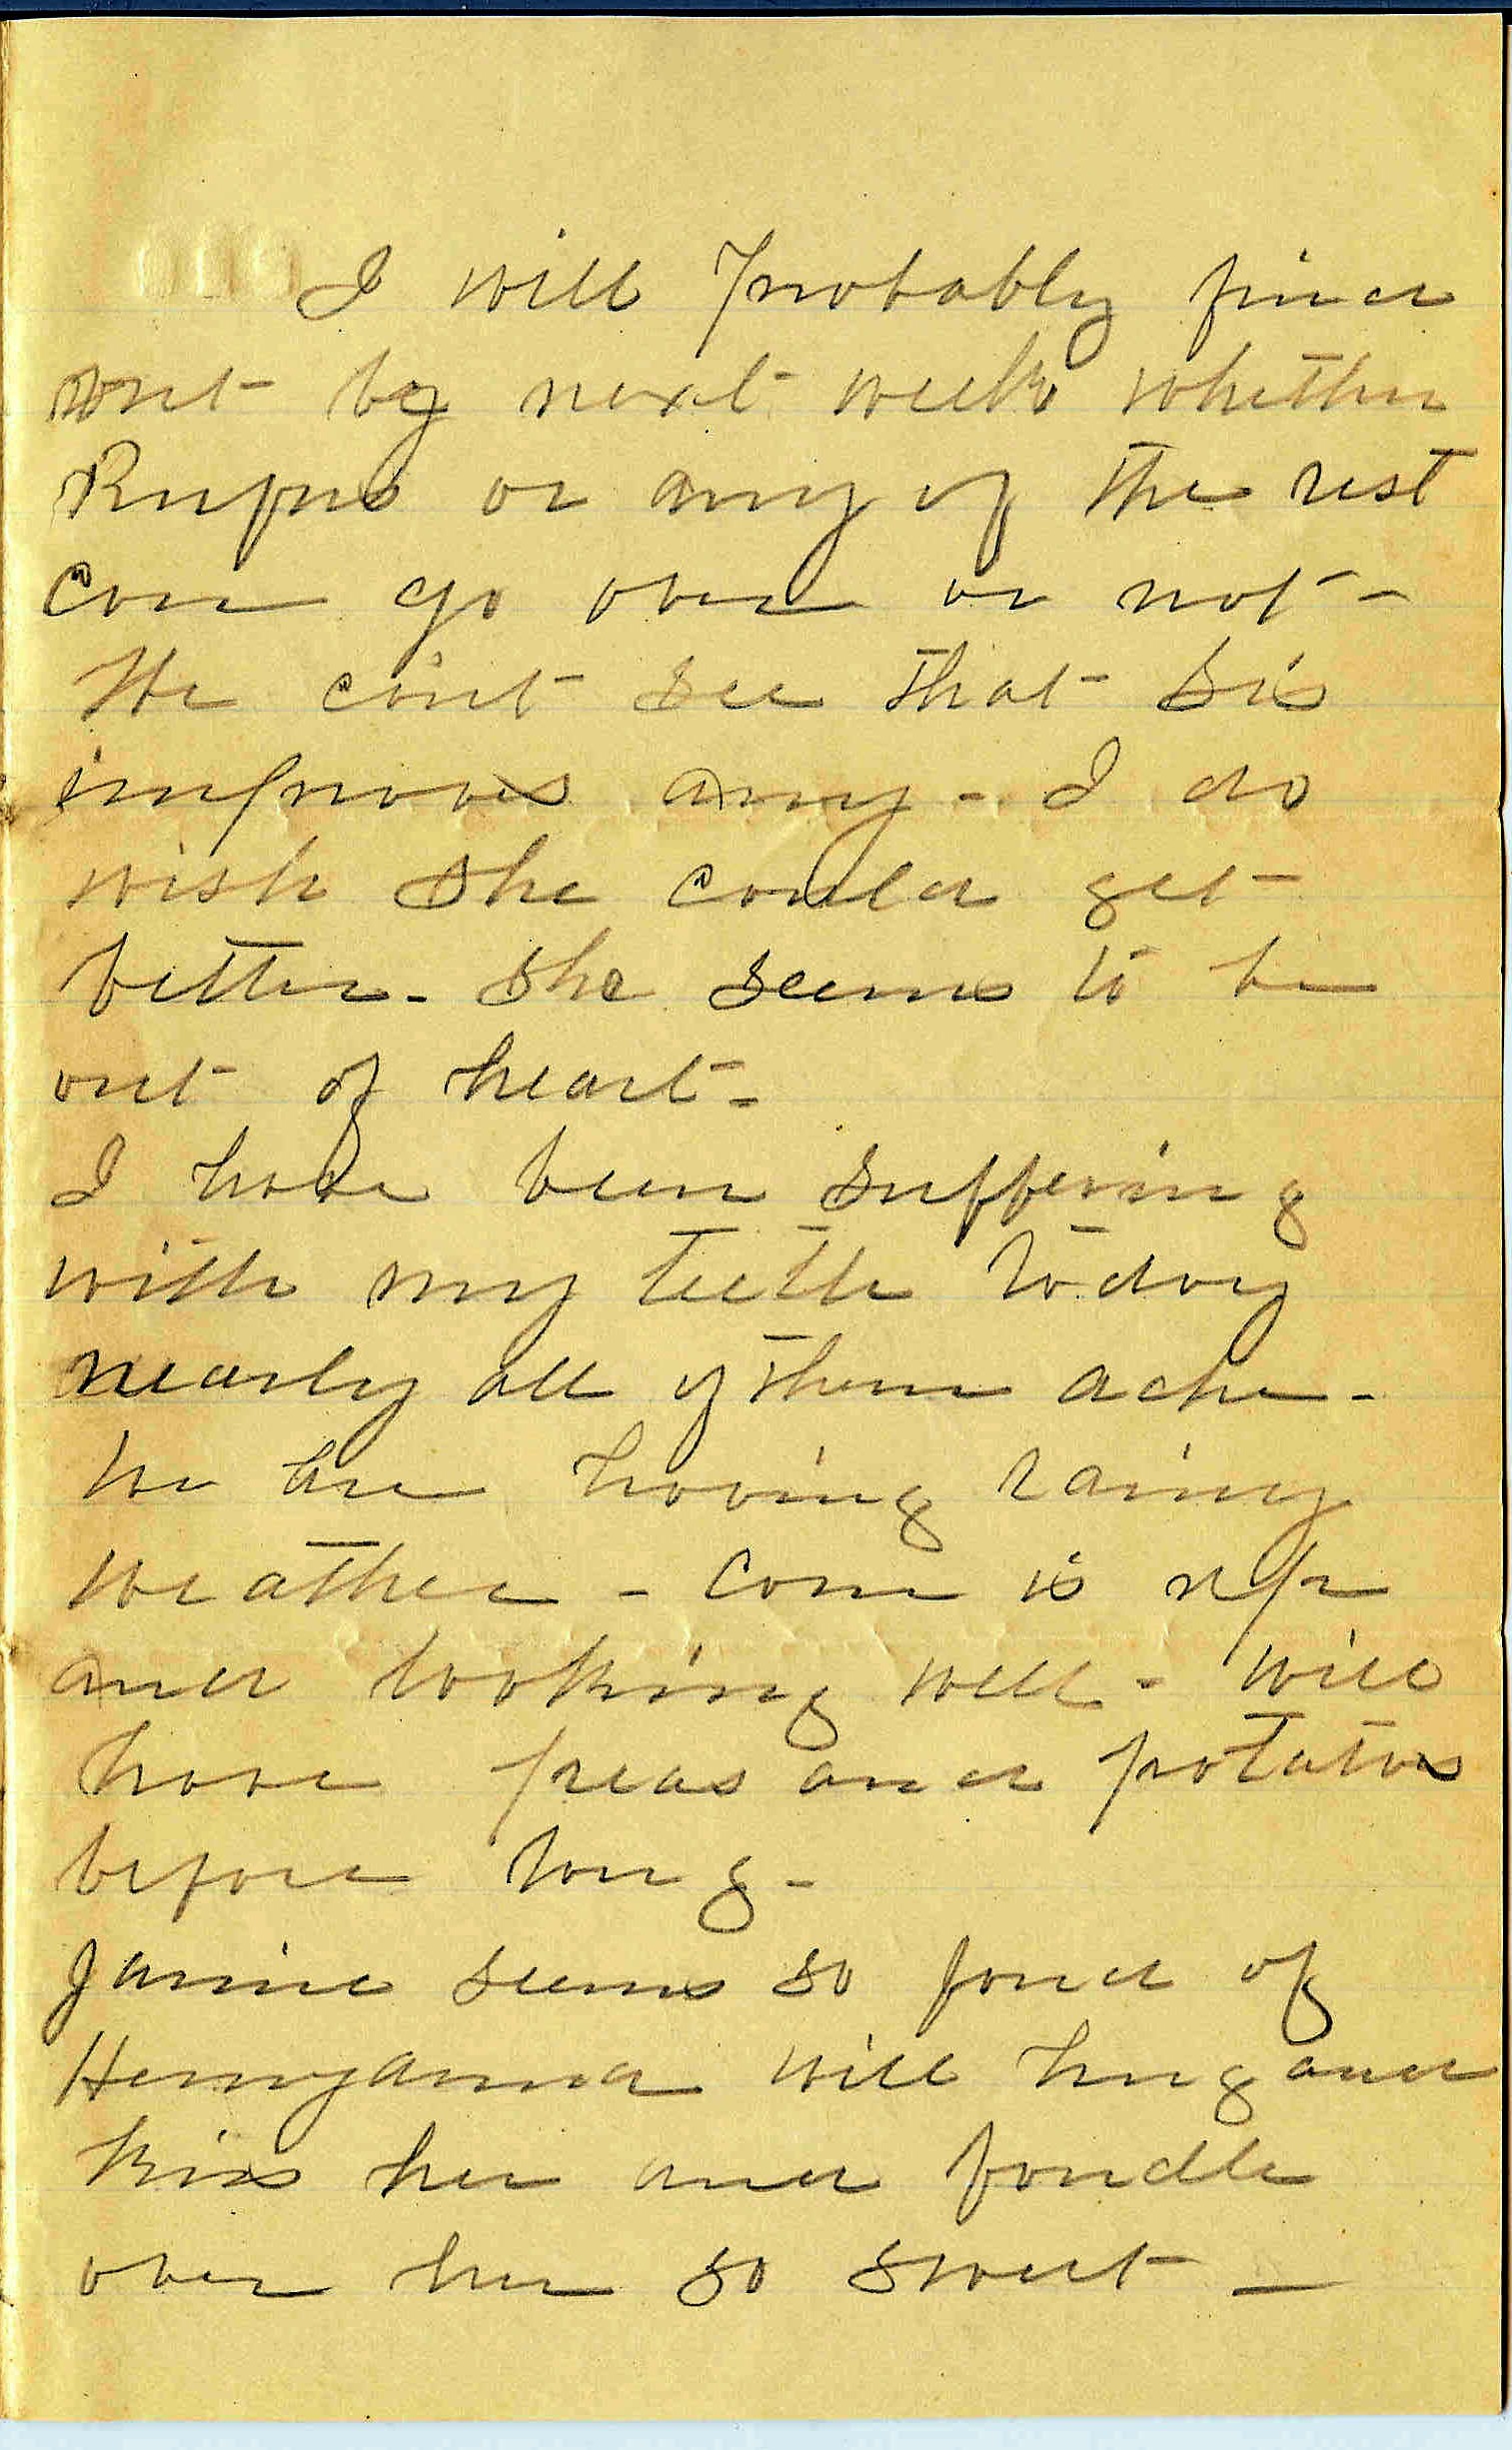 I will probably find
out by next week whether
Rufus or any of the rest
can go over or not -
We can't see that Sis
improves any - I do
wish she could get
better - She seems to be
out of heart -
I have been suffering
with my teeth to day
nearly all of them ache -
We are having rainy
weather - Corn is up
and looking well - Will
have peas and potatoes
before long -
Janie seems so fond of
Henryanna will hug and
kiss her and fondle
over her so sweet -